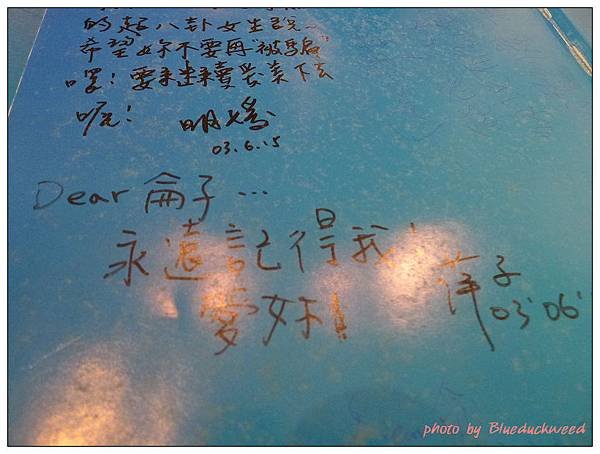 的超八卦女生說…
希望妳不要再"被馬扁"
喔! 要永遠
下去
呢!
明
03.6.15
Dear 侖子…
永遠記得我!
愛妳!
萍子
03' 06'
photo by Blueduckweed